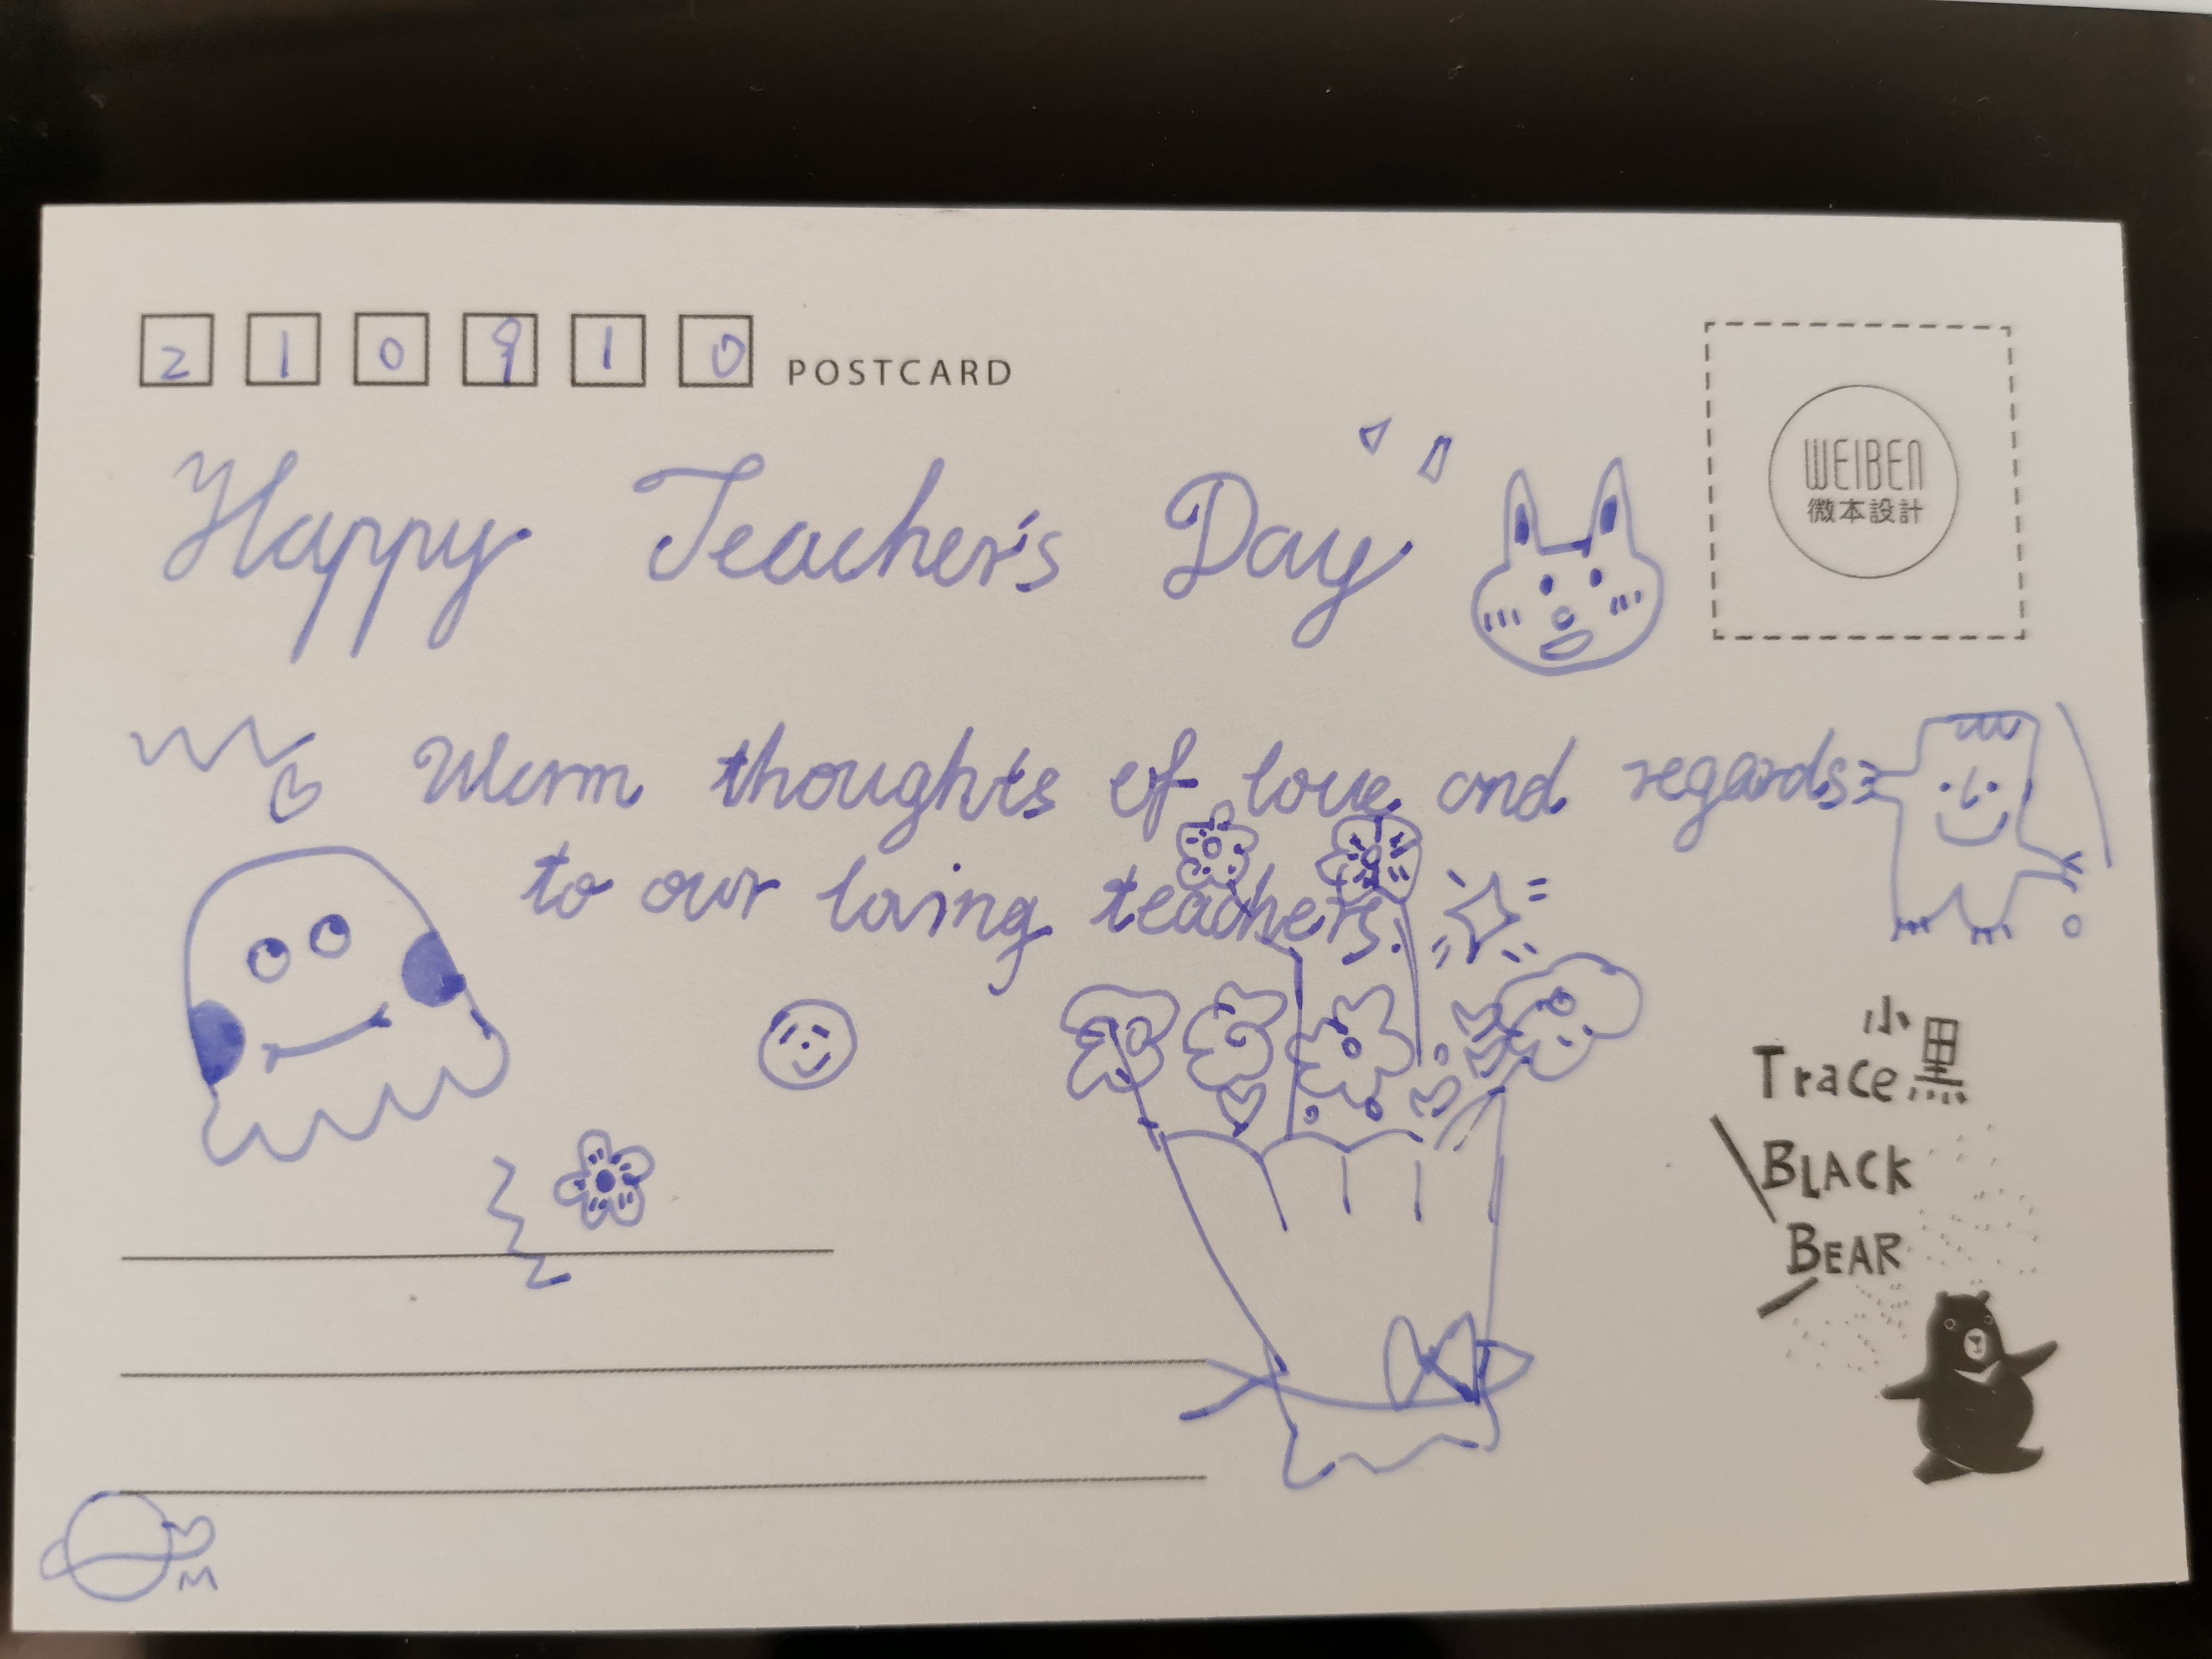 210910 POSTCARD
Happy Teacher's Day
WEIBEN
微本設計
Warm thoughts of love and regards
to our loving teachers.
小黑
Trace
BLACK
BEAR
M